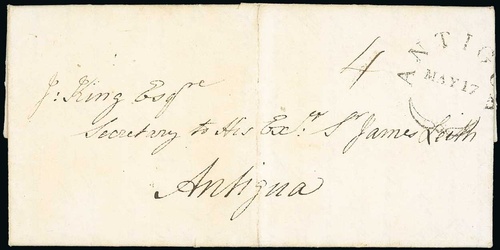 4
ANTIG
MAY 17
J: King Esqre
Secretary to His Excy: Sr James Leith
Antigua